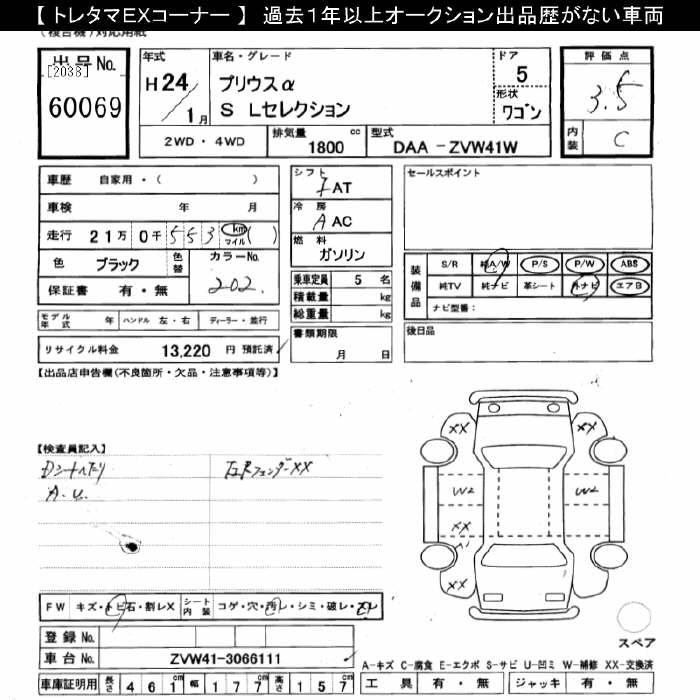 【 トレタマEXコーナー 】 過去1年以上オークション出品歴がない車両
(複合機)対応用紙
出品No.
[2038]
60069
年式
H24/1月
車名・グレード
プリウスα
S Lセレクション
ドア
5
形状
ワゴン
評価点
3.5
内装
C
2WD・4WD
排気量
1800 cc
型式
DAA - ZVW41W
車歴 自家用・( )
車検 年 月
走行 21万 0千 5 5 3 km マイル ( )
色 ブラック 色替 カラーNo. 202
保証書 有・無
モデル年式 年 ハンドル 左・右 ディーラー・並行
リサイクル料金 13,220 円 預託済
シフト
AT
冷房
A AC
燃料
ガソリン
乗車定員 5 名
積載量 kg
総重量 kg
書類期限
月 日
セールスポイント
装備品
S/R 純A/W P/S P/W ABS
純TV 純ナビ 革シート 外ナビ エアB
ナビ型番:
後日品
【出品店申告欄(不良箇所・欠品・注意事項等)】
【検査員記入】
Dシートへたり
A.U.
フェンダーXX
XX XX
W2 W2
XX
A1
XX XX
FW キズ・トビ石・割レX シート内装 コゲ・穴・汚レ・シミ・破レ・
登録No.
車台No. ZVW41-3066111
車庫証明用 長さ 461cm 幅 177cm 高さ 157cm
スペア
A-キズ C-腐食 E-エクボ S-サビ U-凹ミ W-補修 XX-交換済
工具 有・無 ジャッキ 有・無